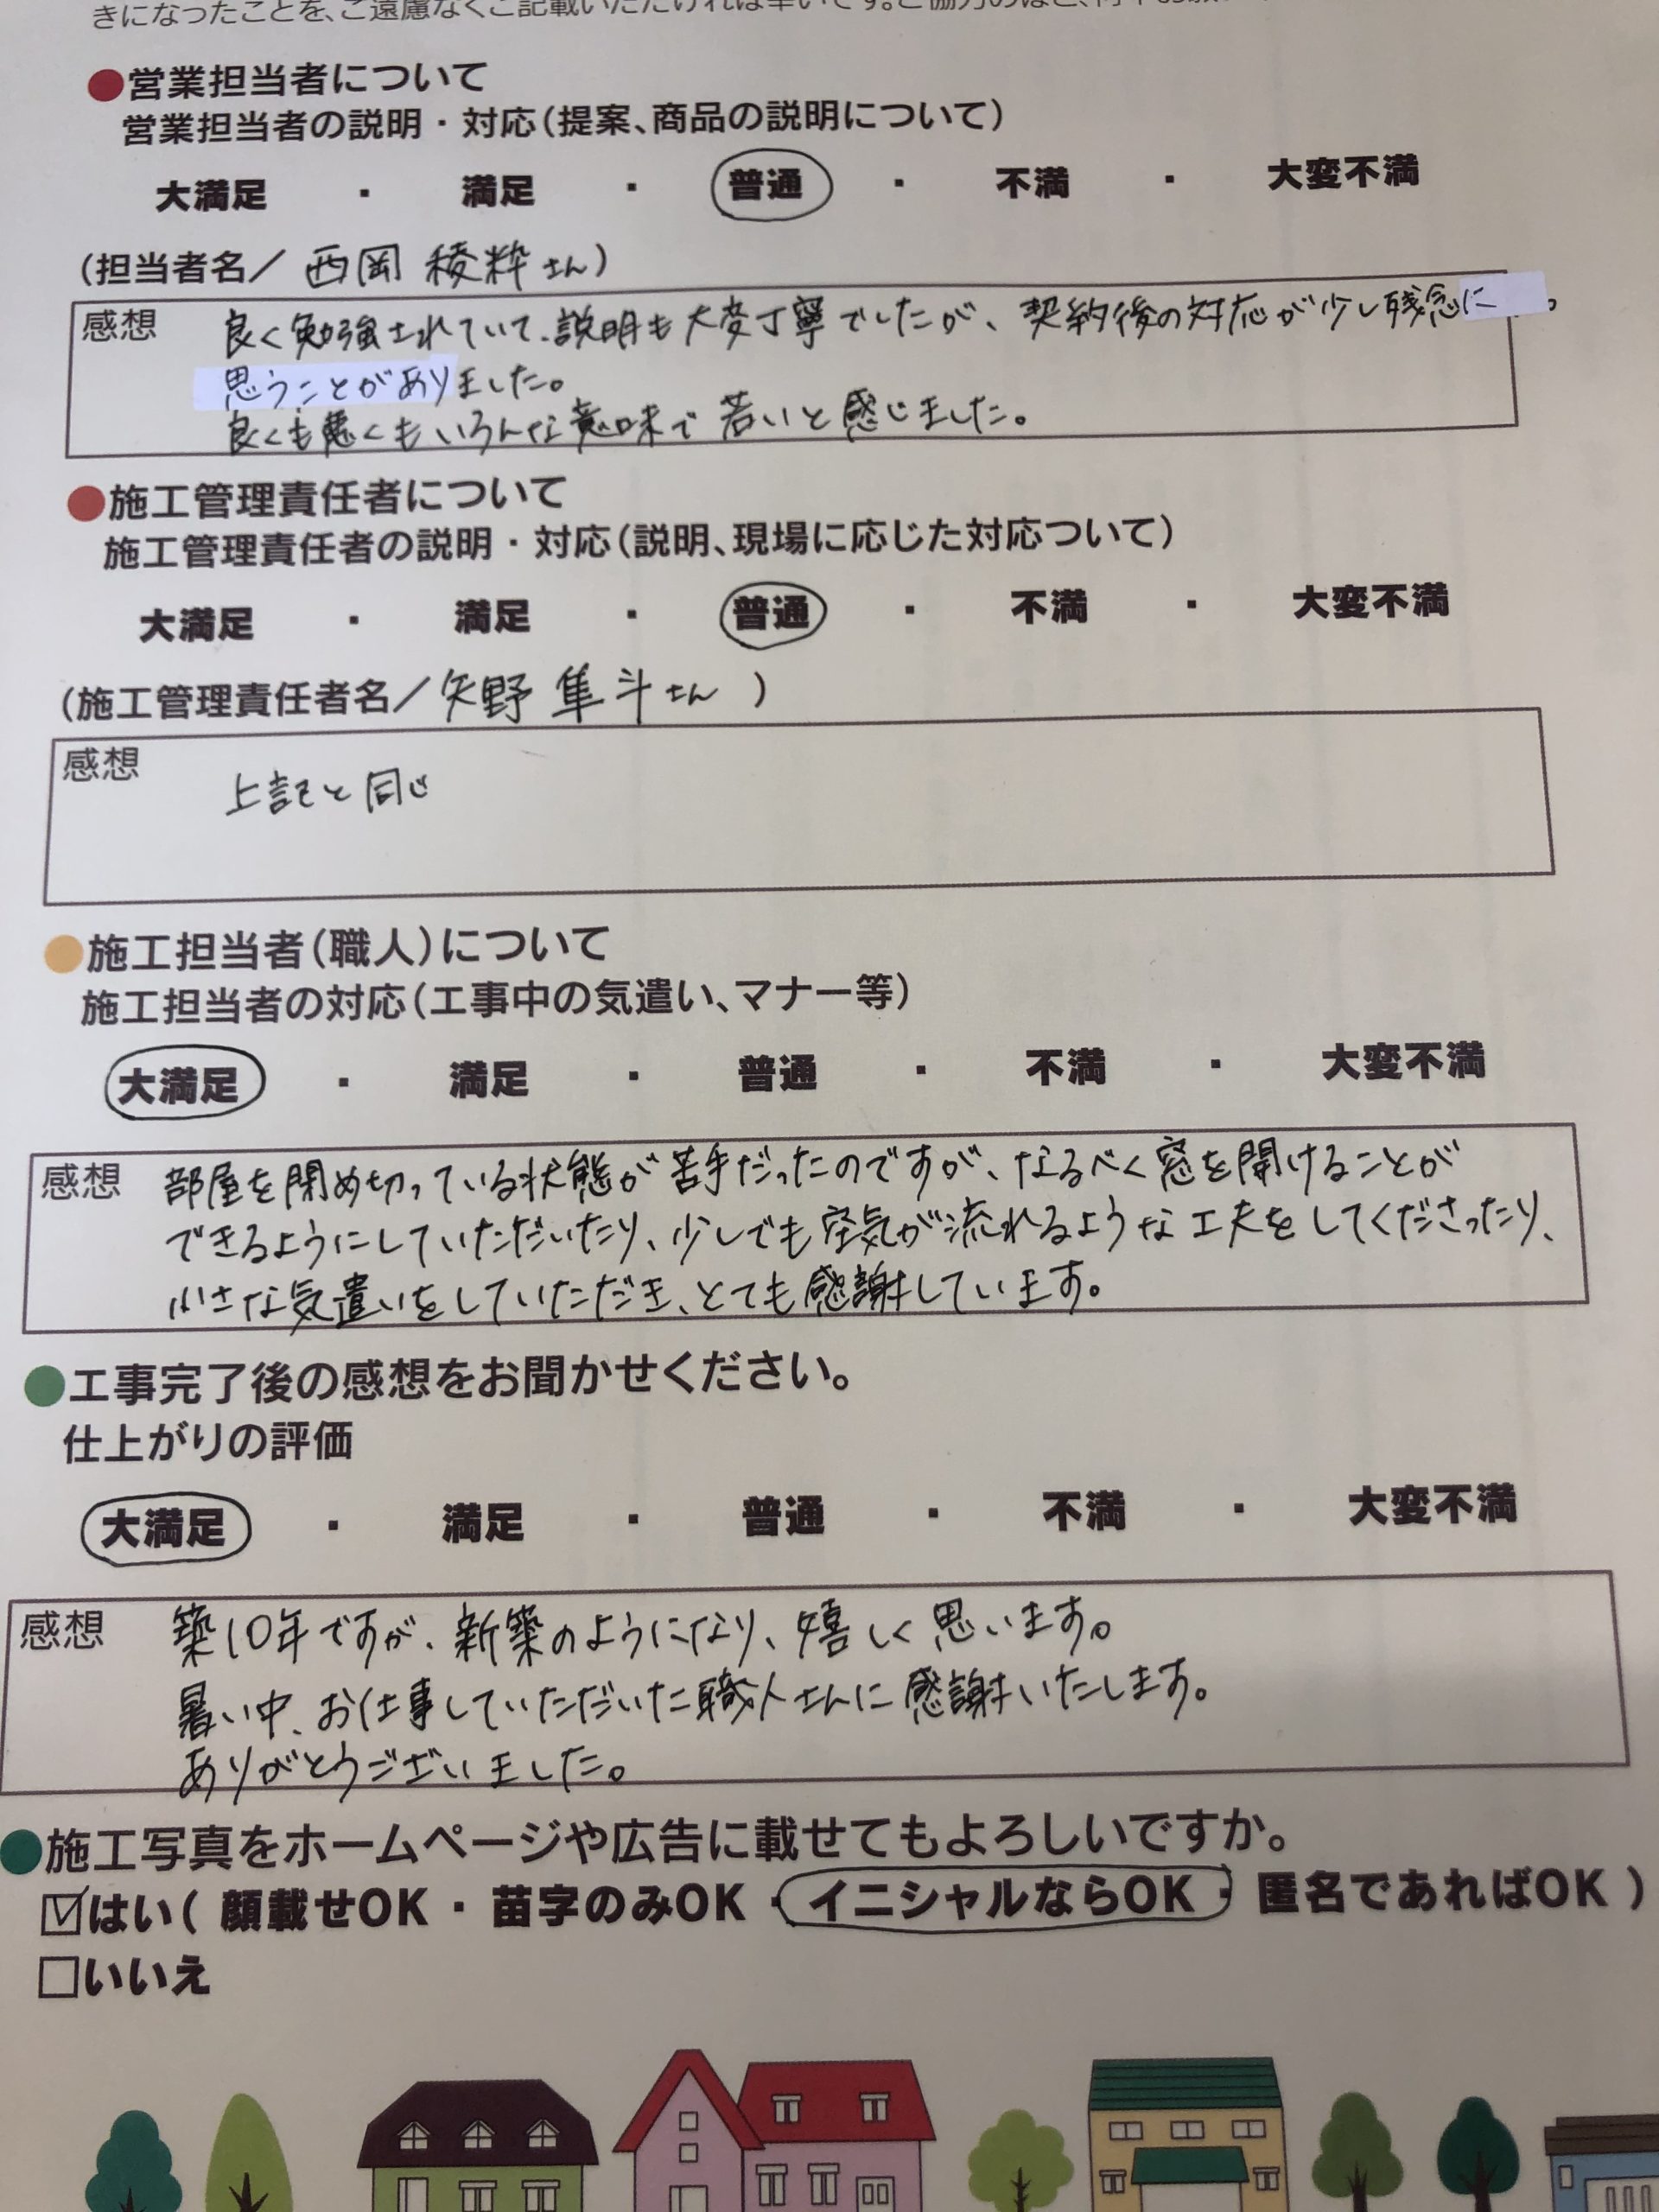 きになったことを、ご遠慮なくご記載いただければ幸いです。ご協力のほど、何卒お願い
●営業担当者について
営業担当者の説明・対応(提案、商品の説明について)
大満足 ・ 満足 ・ 普通 ・ 不満 ・ 大変不満
(担当者名／ 西岡 稜粋さん)
感想 良く勉強されていて、説明も大変丁寧でしたが、契約後の対応が少し残念に 。
思うことがありました。
良くも悪くもいろんな意味で若いと感じました。
●施工管理責任者について
施工管理責任者の説明・対応(説明、現場に応じた対応ついて)
大満足 ・ 満足 ・ 普通 ・ 不満 ・ 大変不満
(施工管理責任者名／矢野 隼斗さん )
感想 上記と同じ
●施工担当者(職人)について
施工担当者の対応(工事中の気遣い、マナー等)
大満足 ・ 満足 ・ 普通 ・ 不満 ・ 大変不満
感想 部屋を閉め切っている状態が苦手だったのですが、なるべく窓を開けることが
できるようにしていただいたり、少しでも空気が流れるような工夫をしてくださったり、
小さな気遣いをしていただき、とても感謝しています。
●工事完了後の感想をお聞かせください。
仕上がりの評価
大満足 ・ 満足 ・ 普通 ・ 不満 ・ 大変不満
感想 築10年ですが、新築のようになり、嬉しく思います。
暑い中、お仕事していただいた職人さんに感謝いたします。
ありがとうございました。
●施工写真をホームページや広告に載せてもよろしいですか。
☑はい( 顔載せOK ・ 苗字のみOK ・ イニシャルならOK ・ 匿名であればOK )
□いいえ